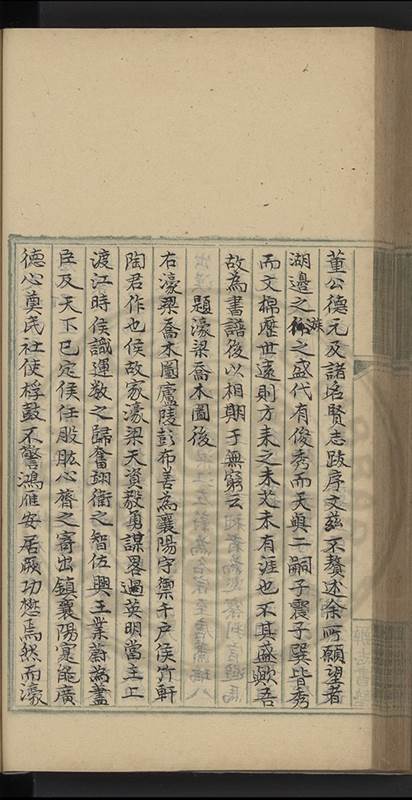 董公德元及諸名賢志跋序文玆不贅述余所願望者
湖邊之族之盛代有俊秀而天與二嗣子震子巽皆秀
而文綿歷世遠則方來之未艾未有涯也不其盛歟吾
故為書譜後以相期于無窮云
題濠梁喬木圖後
右濠梁喬木圖廬陵彭布善為襄陽守禦千戶侯竹軒
陶君作也侯故家濠梁天資毅勇謀畧過英明當主上
渡江時侯識運数之歸奮翊衛之智佐興王業蔚為藎
臣及天下已定侯任股肱心膂之寄出鎮襄陽寔能廣
德心奠民社使桴鼓不警鴻雁安居厥功懋焉然而濠